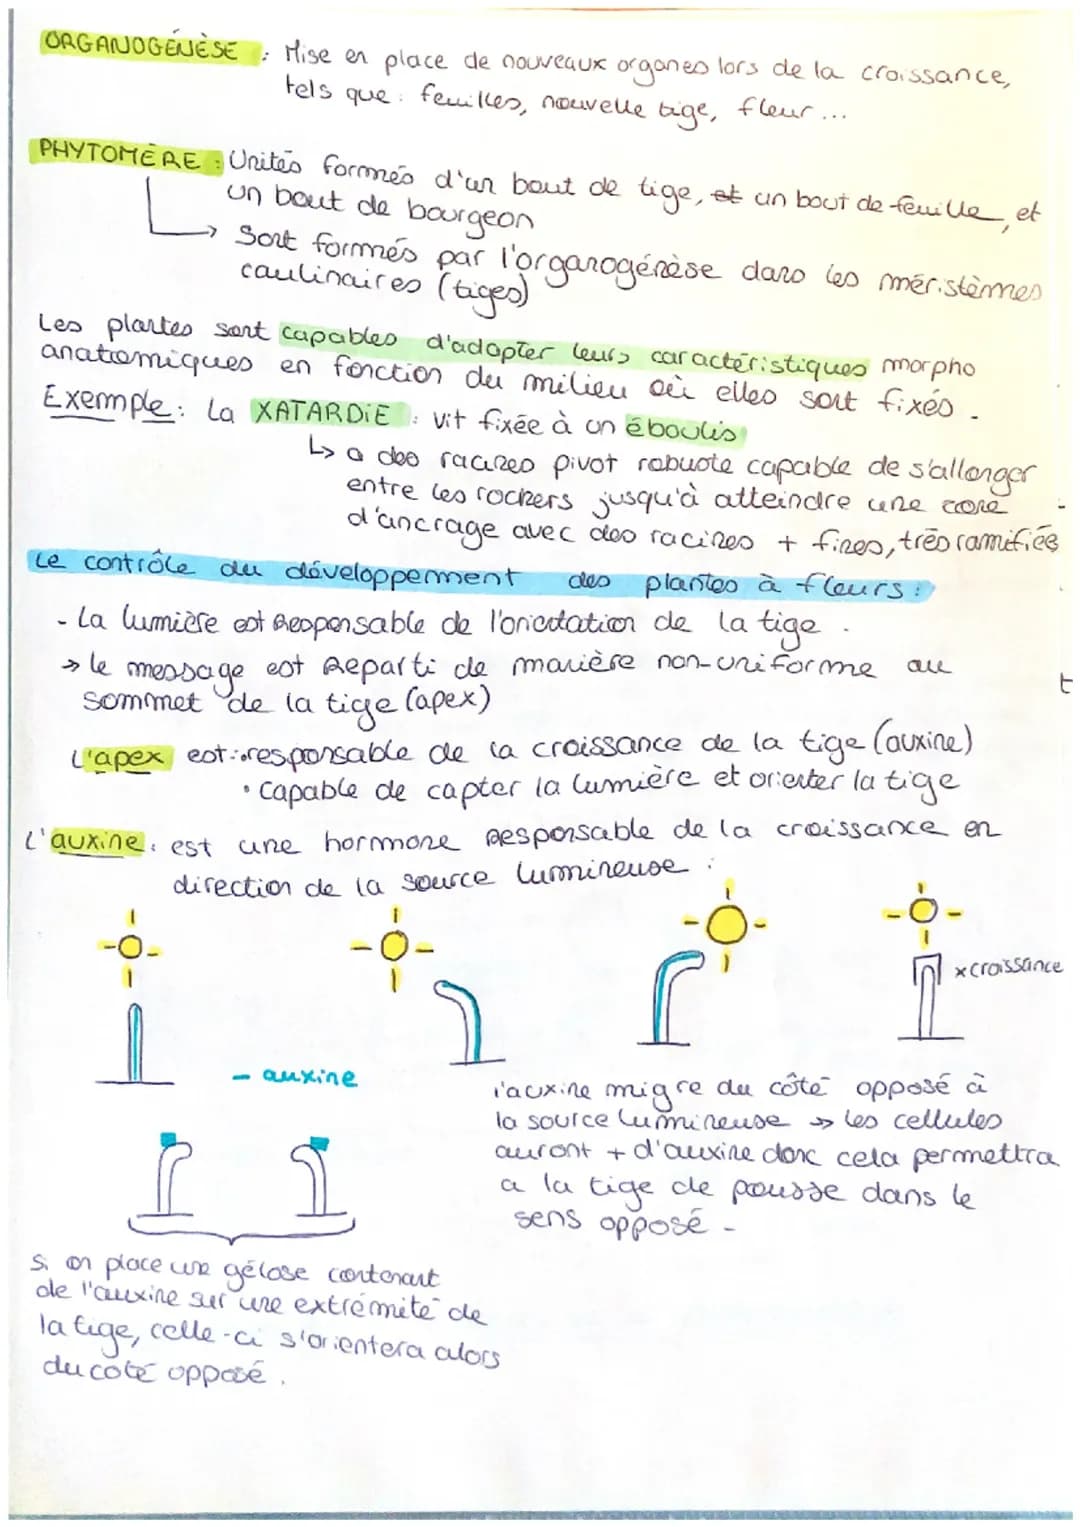 ORGANOGÉNÈSE : Mise en place de nouveaux organes lors de la croissance,
tels que : feuilles, nouvelle tige, fleur...
PHYTOMÈRE : Unités formés d'un bout de tige, et un bout de feuille, et
un bout de bourgeon
→ Sont formés par l'organogénèse dans les méristèmes
caulinaires (tiges)
Les plantes sont capables d'adapter leurs caractéristiques morpho
anatomiques en fonction du milieu où elles sont fixés.
Exemple : La XATARDIE : vit fixée à un éboulis
↳ a des racines pivot robuste capable de s'allonger
entre les rochers jusqu'à atteindre une zone
d'ancrage avec des racines + fines, très ramifiées
Le contrôle du développement des plantes à fleurs :
- La lumière est Responsable de l'orientation de la tige.
→ le message est Réparti de manière non-uniforme au
sommet de la tige (apex)
t
L'apex est : • responsable de la croissance de la tige (auxine)
• Capable de capter la lumière et orienter la tige
L'auxine : est une hormone Responsable de la croissance en
direction de la source lumineuse :
x croissance
- auxine
l'auxine migre du côté opposé à
la source lumineuse → les cellules
auront + d'auxine donc cela permettra
a la tige de pousse dans le
sens opposé -
Si on place une gélose contenant
de l'auxine sur une extrémité de
la tige, celle-ci s'orientera alors
du coté opposé.